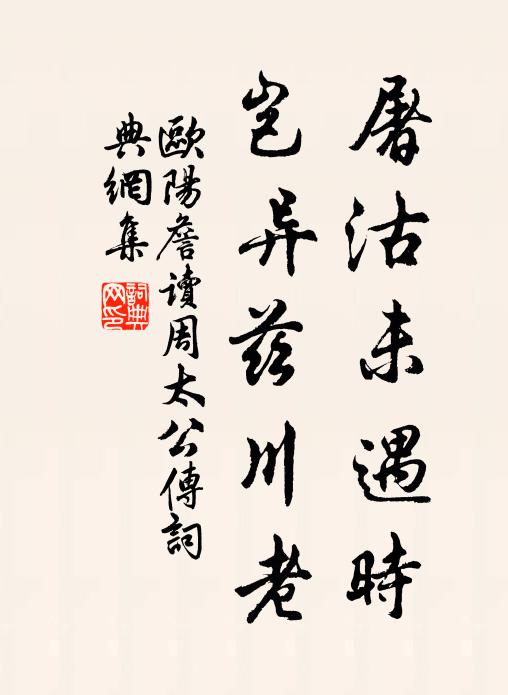 屠沽未遇時
豈异茲川老
歐陽詹讀周太公傳詞
典網集
詞典
网印